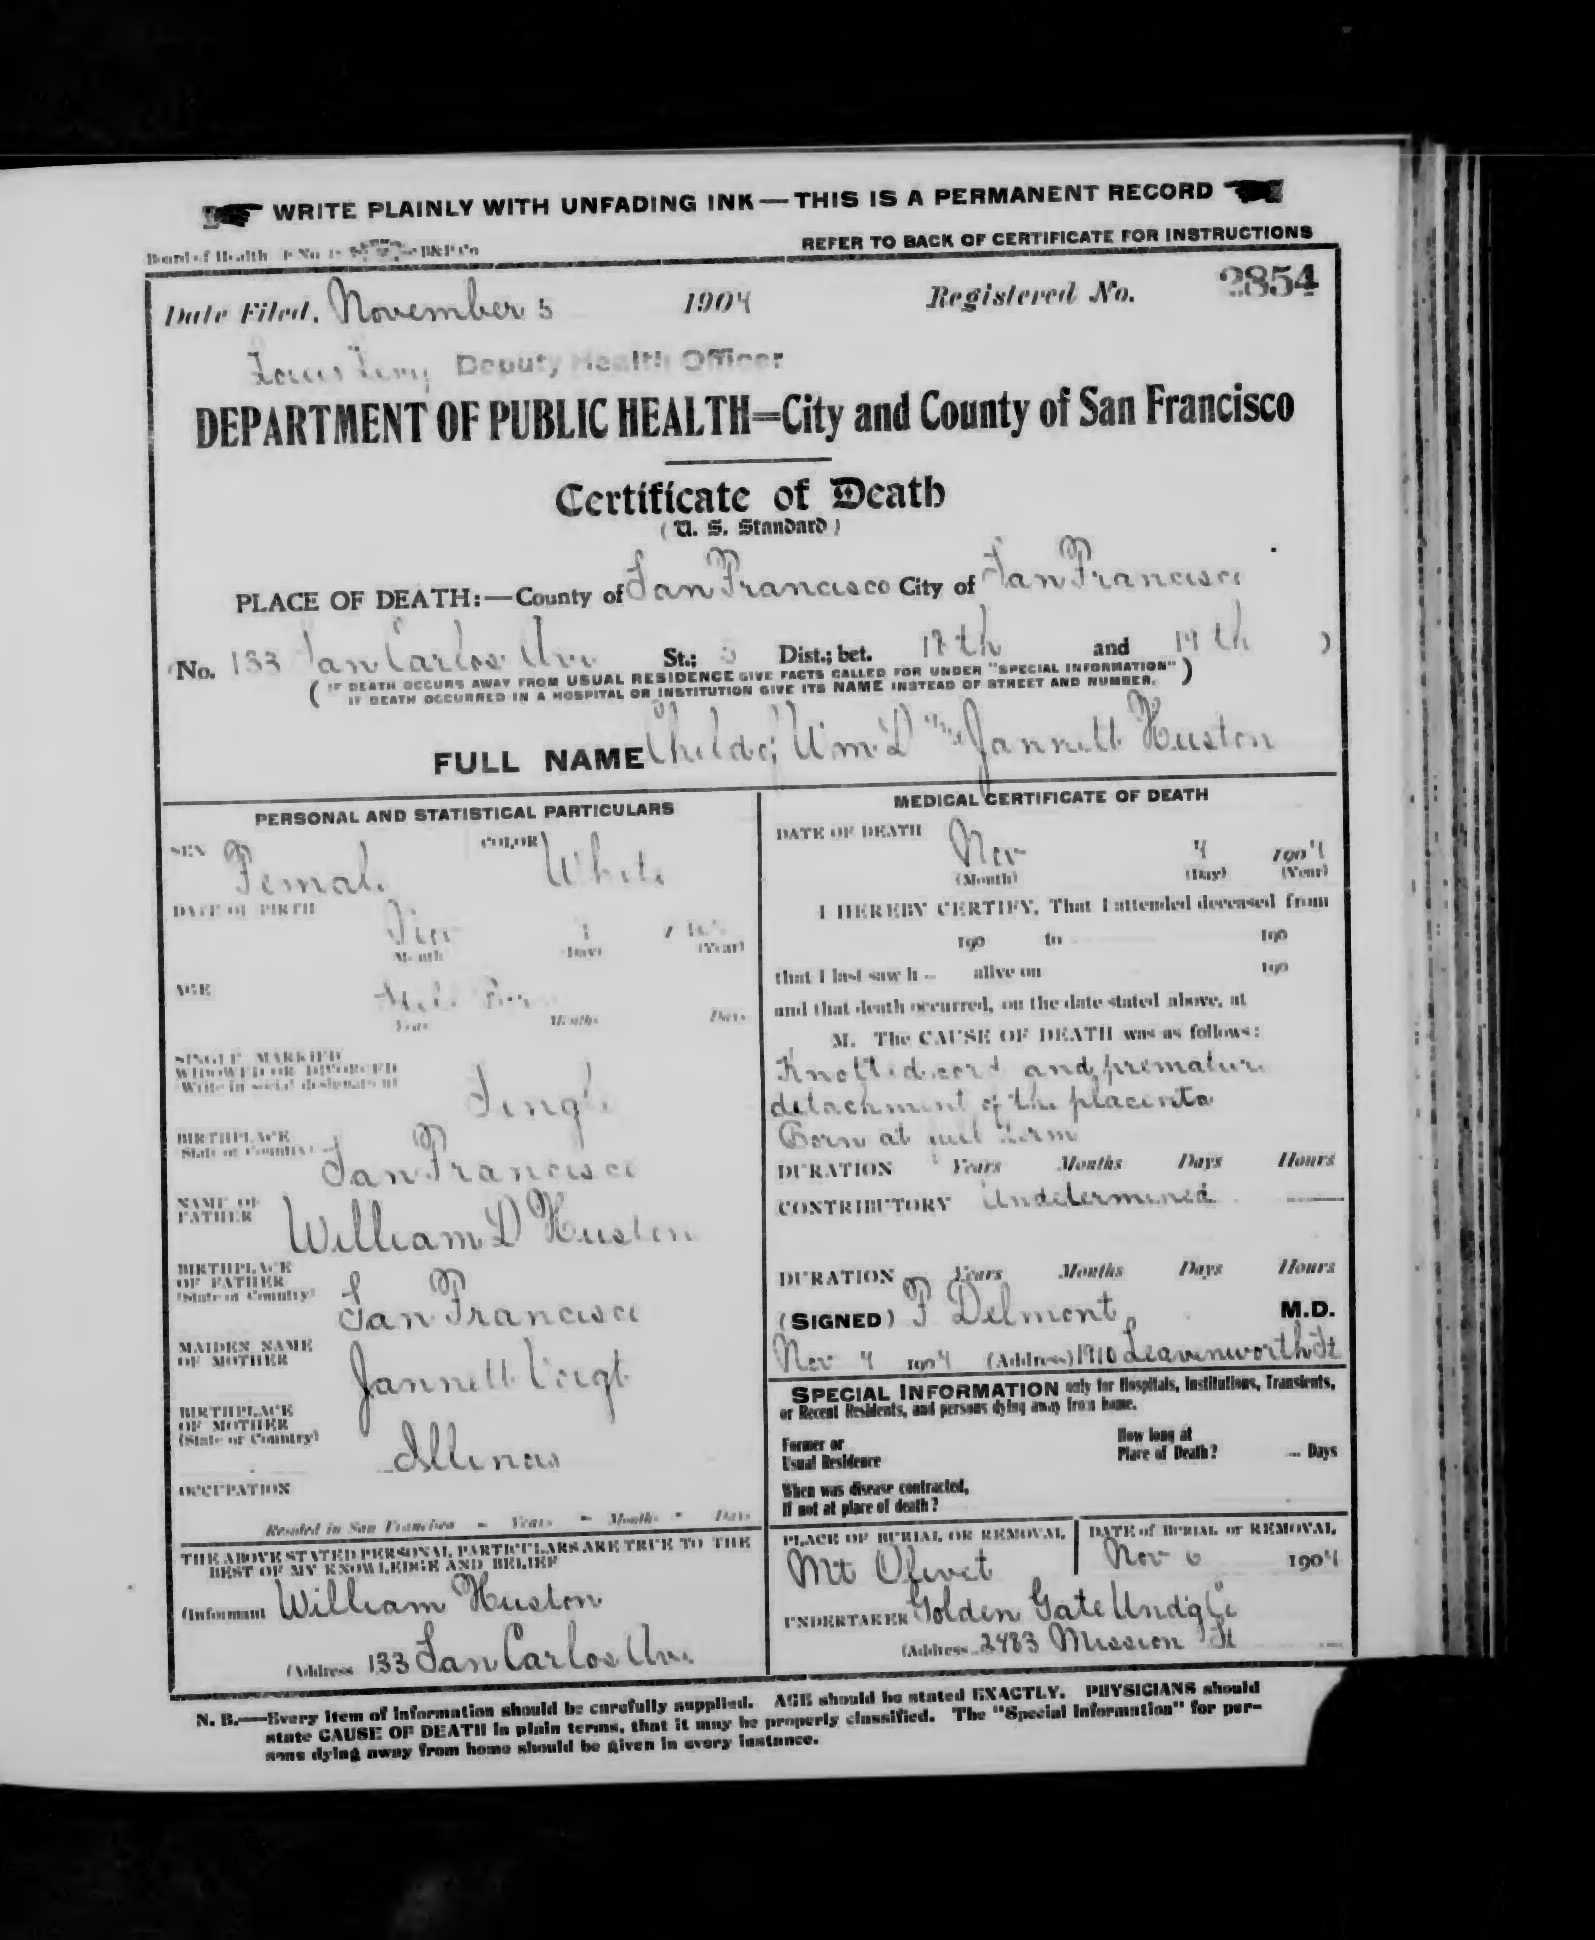 WRITE PLAINLY WITH UNFADING INK—THIS IS A PERMANENT RECORD
Board of Health B&P Co
REFER TO BACK OF CERTIFICATE FOR INSTRUCTIONS
Date Filed, November 5 1904 Registered No. 2854
Deputy Health Officer
DEPARTMENT OF PUBLIC HEALTH=City and County of San Francisco
Certificate of Death
(U. S. Standard)
PLACE OF DEATH:—County of San Francisco City of San Francisco
No. 133 San Carlos Ave St.; Dist.; bet. 18th and 19th )
( IF DEATH OCCURS AWAY FROM USUAL RESIDENCE GIVE FACTS CALLED FOR UNDER "SPECIAL INFORMATION" )
IF DEATH OCCURRED IN A HOSPITAL OR INSTITUTION GIVE ITS NAME INSTEAD OF STREET AND NUMBER.
FULL NAME Child of Wm D Jannett Huston
PERSONAL AND STATISTICAL PARTICULARS
SEX Female COLOR White
DATE OF BIRTH
Month Day (Year)
AGE Still Born
Years Months Days
SINGLE MARRIED
WIDOWED OR DIVORCED
Write in social designation
Single
BIRTHPLACE
State or Country
San Francisco
NAME OF
FATHER
William D Huston
BIRTHPLACE
OF FATHER
(State or Country)
San Francisco
MAIDEN NAME
OF MOTHER
Jannett Voigt
BIRTHPLACE
OF MOTHER
(State or Country)
Illinois
OCCUPATION
Resided in San Francisco - Years - Months - Days
THE ABOVE STATED PERSONAL PARTICULARS ARE TRUE TO THE
BEST OF MY KNOWLEDGE AND BELIEF
(Informant William Huston
(Address 133 San Carlos Ave.
MEDICAL CERTIFICATE OF DEATH
DATE OF DEATH Nov 4 1904
(Month) (Day) (Year)
I HEREBY CERTIFY, That I attended deceased from
190 to 190
that I last saw h alive on 190
and that death occurred, on the date stated above, at
M. The CAUSE OF DEATH was as follows:
Knotted cord and premature
detachment of the placenta
Born at full term
DURATION Years Months Days Hours
CONTRIBUTORY Undetermined
DURATION Years Months Days Hours
(SIGNED) P Delmont M.D.
Nov 4 1904 (Address) 1910 Leavenworth St
SPECIAL INFORMATION only for Hospitals, Institutions, Transients,
or Recent Residents, and persons dying away from home.
Former or
Usual Residence
How long at
Place of Death? Days
When was disease contracted,
If not at place of death?
PLACE OF BURIAL OR REMOVAL
Mt Olivet
DATE of BURIAL or REMOVAL
Nov 6 1904
UNDERTAKER Golden Gate Undg Co
(Address 2483 Mission St
N. B.—Every item of information should be carefully supplied. AGE should be stated EXACTLY. PHYSICIANS should
state CAUSE OF DEATH in plain terms, that it may be properly classified. The "Special Information" for per-
sons dying away from home should be given in every instance.